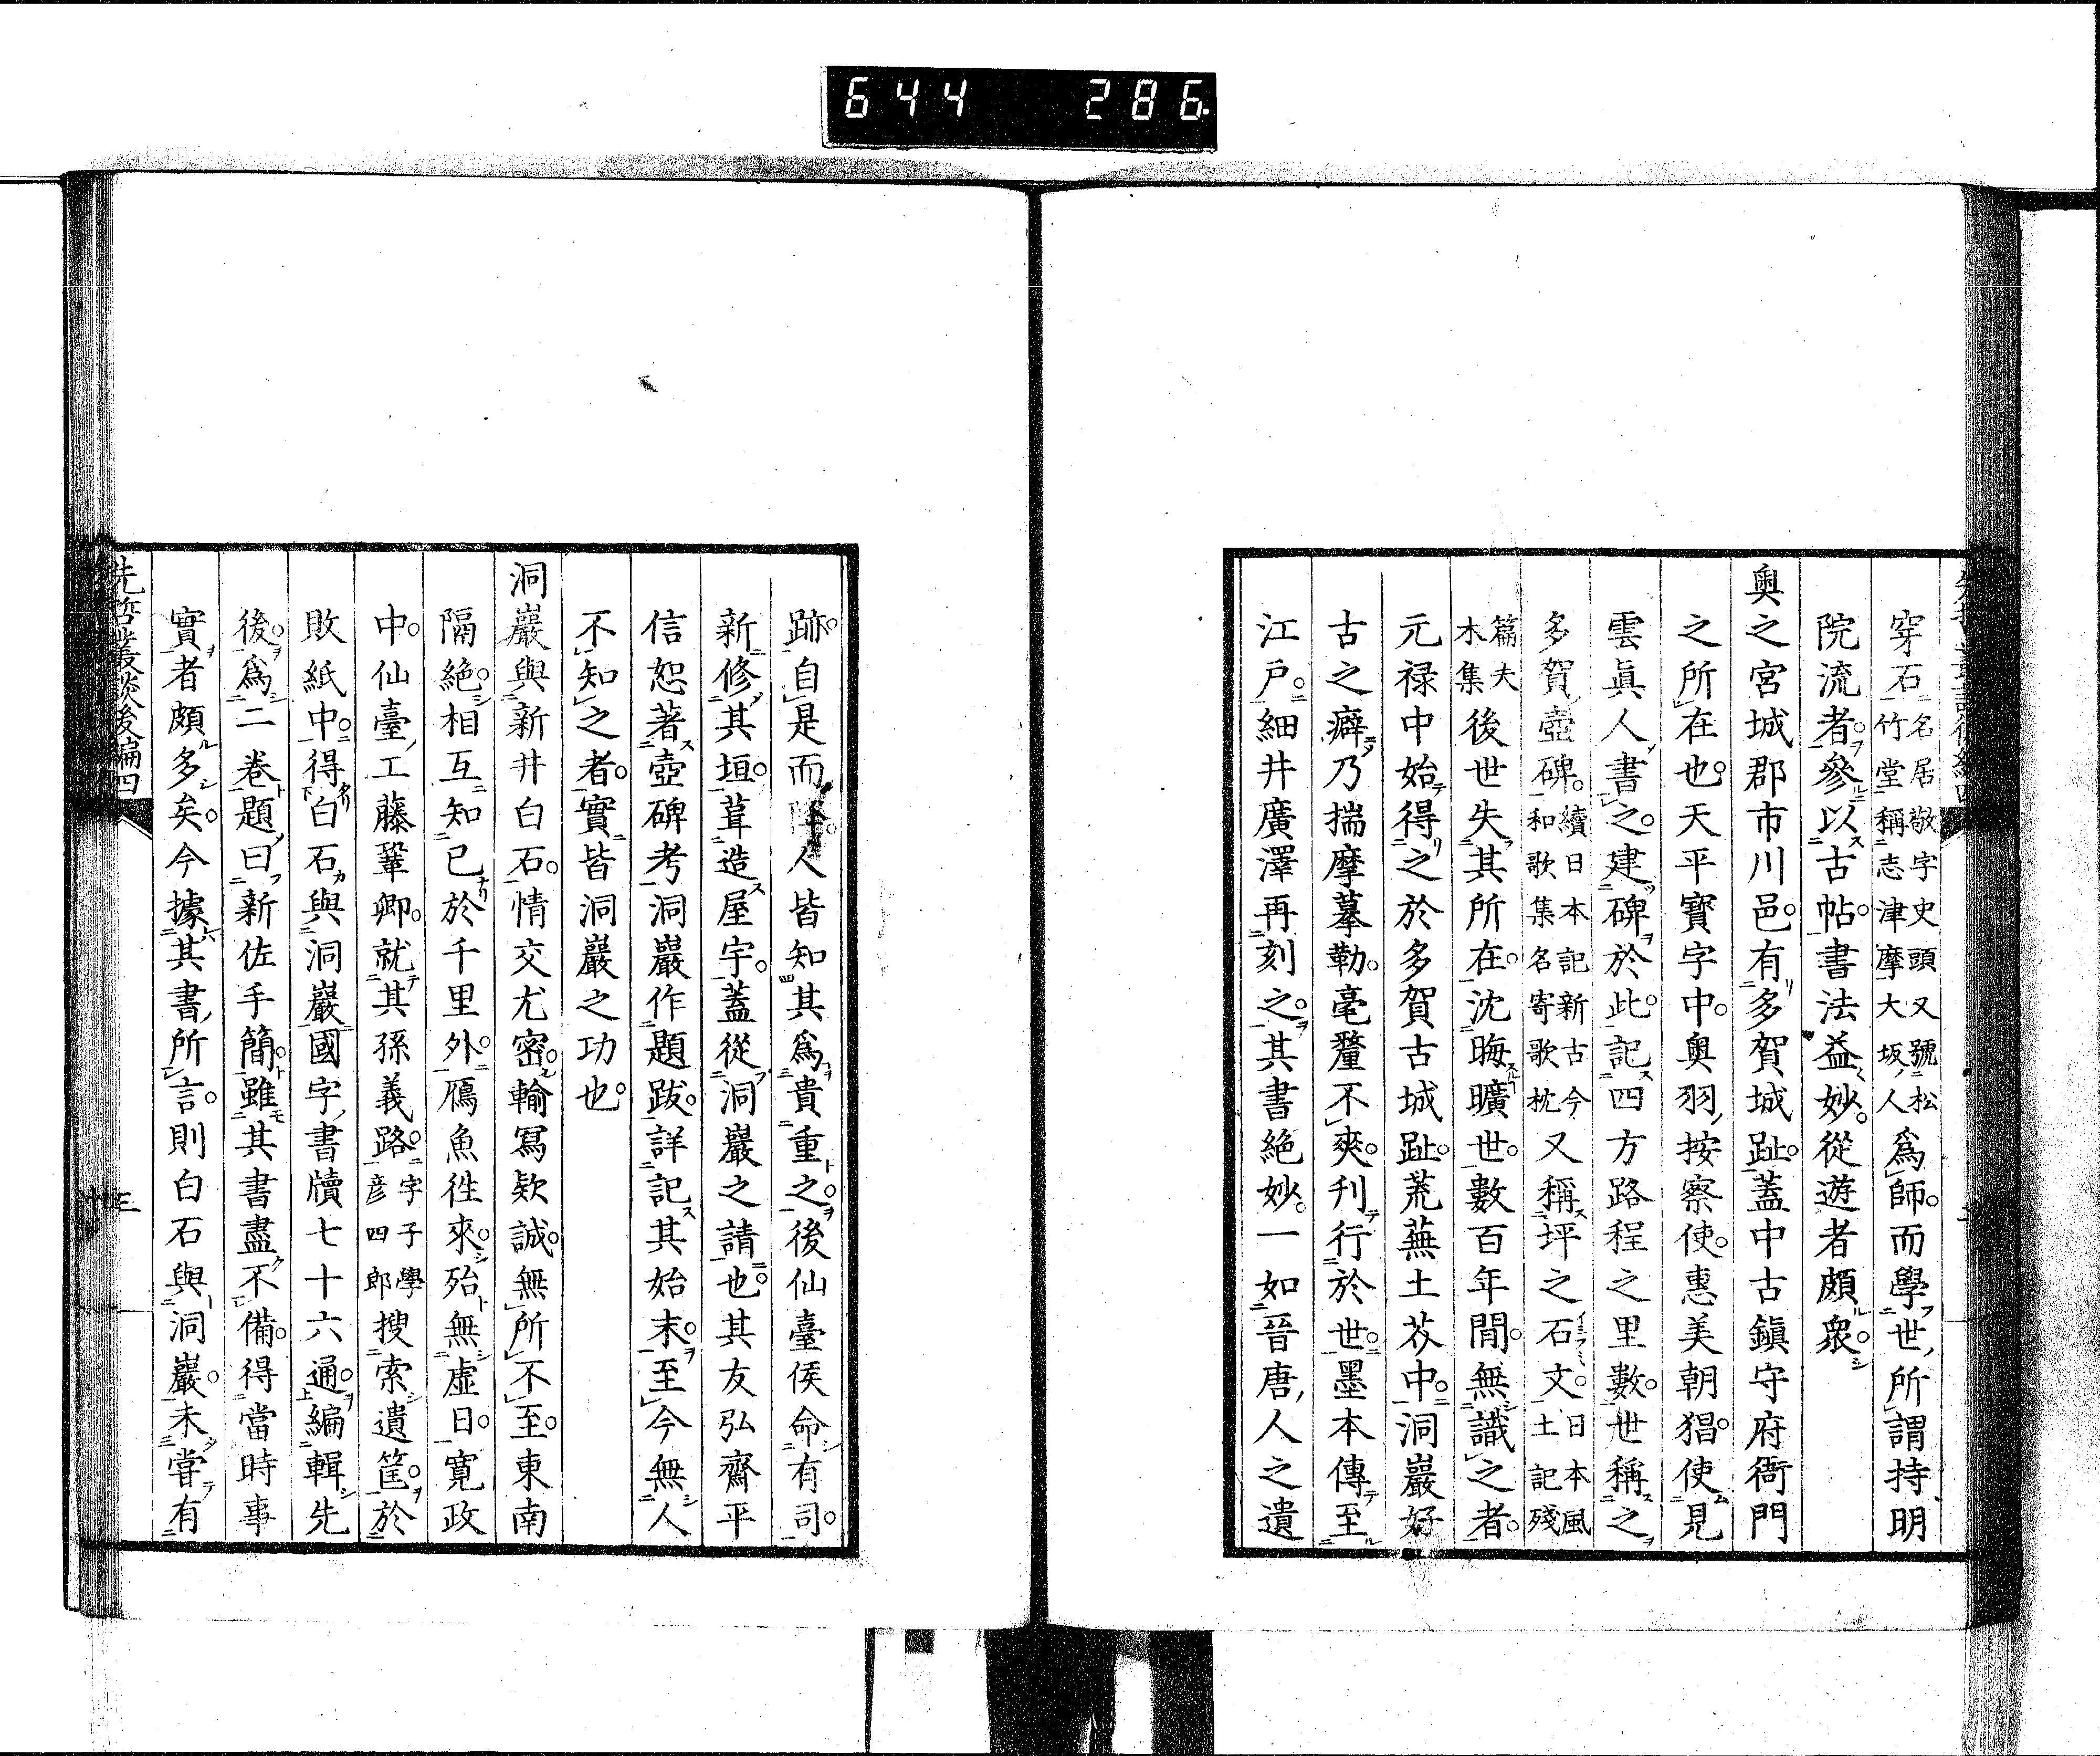 644 286
穿石名居敬字史頭又號松竹堂稱志津摩大坂人爲師而學世所謂持明
院流者參以古帖書法益妙從遊者頗衆
奧之宮城郡市川邑有多賀城趾蓋中古鎭守府衙門
之所在也天平寶字中奧羽按察使惠美朝猖使見
雲眞人書之建碑於此記四方路程之里數世稱之
多賀壺碑續日本記新古今和歌集名寄歌枕又稱坪之石文日本風土記殘
篇夫木集後世失其所在沈晦曠世數百年間無識之者
元禄中始得之於多賀古城趾荒蕪土芥中洞巖好
古之癖乃揣摩摹勒毫釐不爽刊行於世墨本傳至
江戸細井廣澤再刻之其書絶妙一如晉唐人之遺
跡自是而人皆知其爲貴重之後仙臺侯命有司
新修其垣葺造屋宇蓋從洞巖之請也其友弘齋平
信恕著壺碑考洞巖作題跋詳記其始末至今無人
不知之者實皆洞巖之功也
洞巖與新井白石情交尤密輸寫欵誠無所不至東南
隔絶相互知己於千里外鴈魚徃來殆無虚日寛政
中仙臺工藤鞏卿就其孫義路字子學彦四郎搜索遺筐於
敗紙中得白石與洞巖國字書牘七十六通編輯先
後爲二卷題曰新佐手簡雖其書盡不備得當時事
實者頗多矣今據其書所言則白石與洞巖未嘗有
先哲叢談後編四